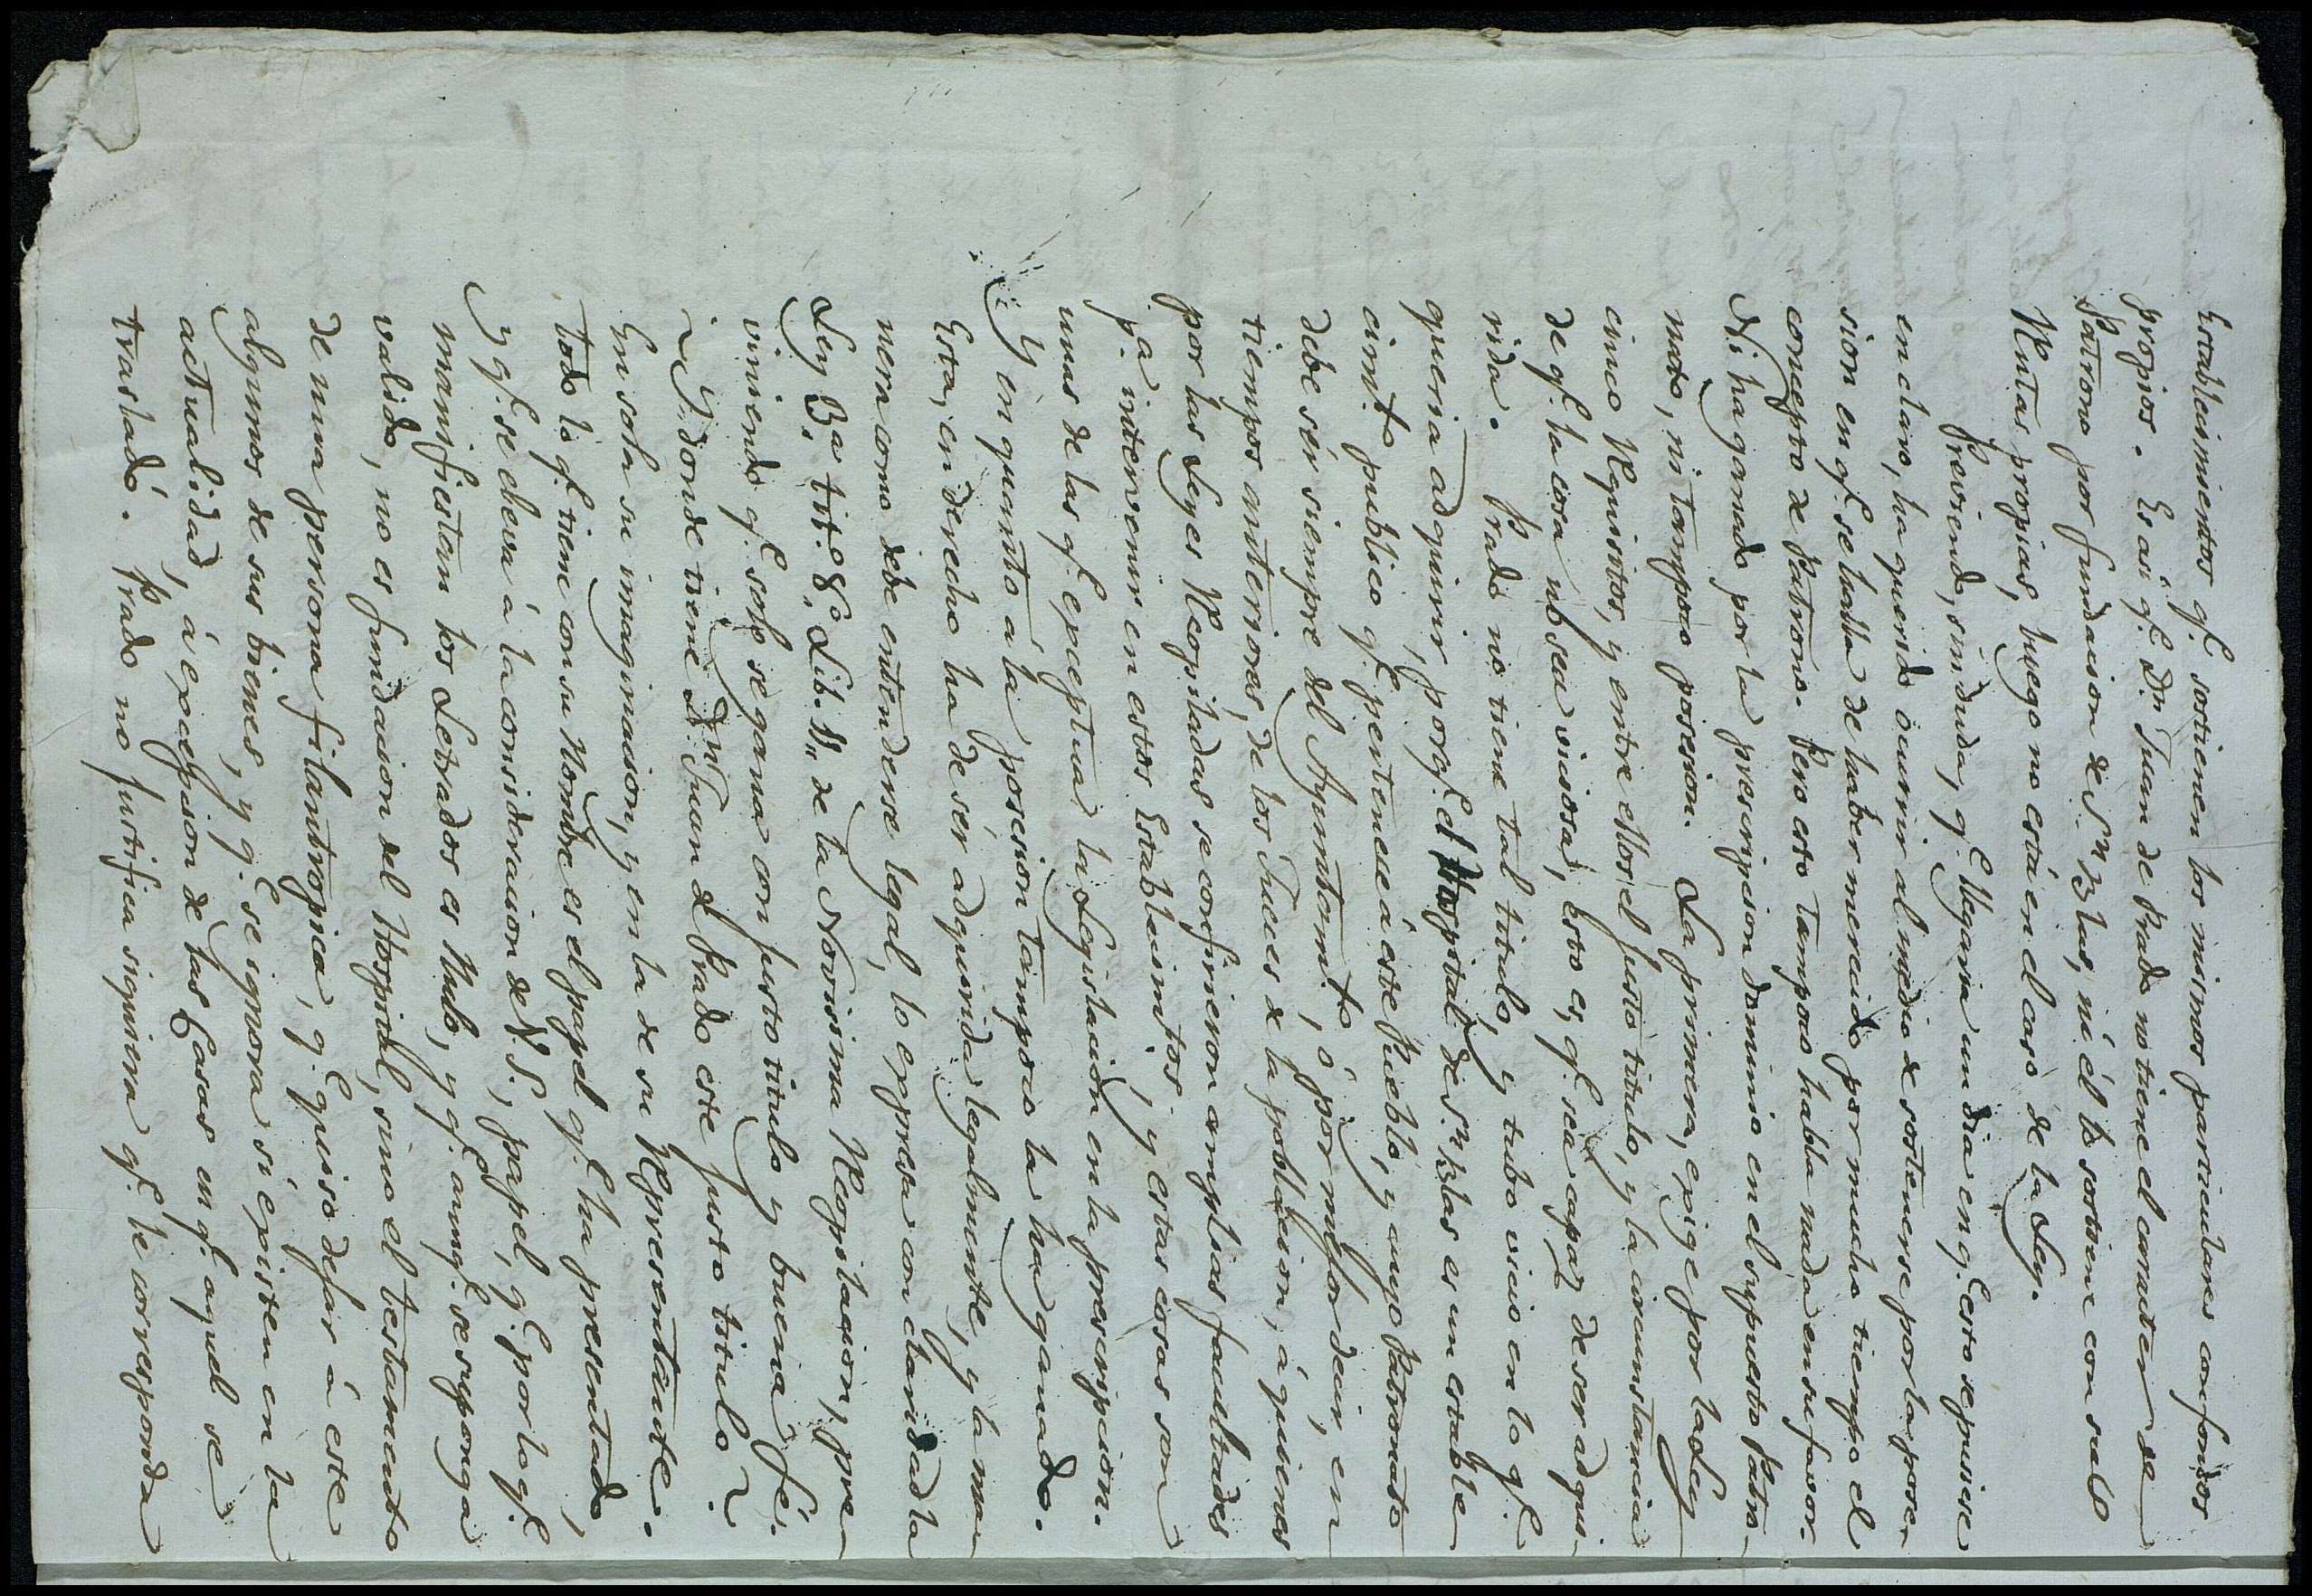 Establecimientos q.e sostienen los mismos particulares con fondos
propios. Es asi q.e D.n Juan de Prado no tiene el caracter de
Patrono por fundacion de S.n Blas, ni él lo sostiene con sus
Rentas propias, luego no está en el caso de la Ley.
Previendo, sin duda, q.e llegaria un dia en q.e esto se pusiese
en claro, ha querido ocurrir al medio de sostenerse por la pose-
sion en q.e se halla de haber merecido por mucho tiempo el
concepto de Patrono. Pero esto tampoco habla nada en su favor.
Ni ha ganado por la prescripcion dominio en el supuesto Patro-
nato, ni tampoco posesion. La primera, exige por la Ley
cinco Requisitos, y entre ellos el justo titulo, y la circunstancia
de q.e la cosa no sea viciosa, esto es, q.e sea capaz de ser adqui-
rida. Prado no tiene tal titulo, y tubo vicio en lo q.e
queria adquirir, porq.e el Hospital de S.n Blas es un estable-
cim.to publico q.e pertenece á este Pueblo, y cuyo Patronato
debe sér siempre del Ayuntam.to, ó por mejor decir, en
tiempos anteriores, de los Jueces de la poblacion, á quienes
por las Leyes Recopiladas se confirieron amplias facultades
p.a intervenir en estos Establecimtos, y estas cosas son
unas de las q.e eceptua la Legislacion en la prescripcion.
Y en quanto á la posesion tampoco la ha ganado.
Esta, en derecho ha de sér adquirida legalmente, y la ma-
nera como debe entenderse legal, lo expresa con claridad la
Ley 3.a tit. 8.o Lib. 11,, de la Novisima Recopilacion, pre-
viniendo q.e solo se gana con justo titulo y buena fé.
¿Y donde tiene D.n Juan de Prado este justo titulo?
En sola su imaginacion, y en la de su Representante.
Todo lo q.e tiene con su Nombre es el papel q.e ha presentado,
y q.e se eleva á la consideracion de V.S., papel, q.e por lo q.e
manifiestan los Letrados es Nulo, y q.e aunq.e se suponga
valido, no es fundacion del Hospital, sino el testamento
de una persona filantropica, q.e quiso dejar á este
algunos de sus bienes, y q.e se ignora si existen en la
actualidad, á excepcion de las Casas en q.e aquel se
trasladó. Prado no justifica siquiera q.e le corresponda